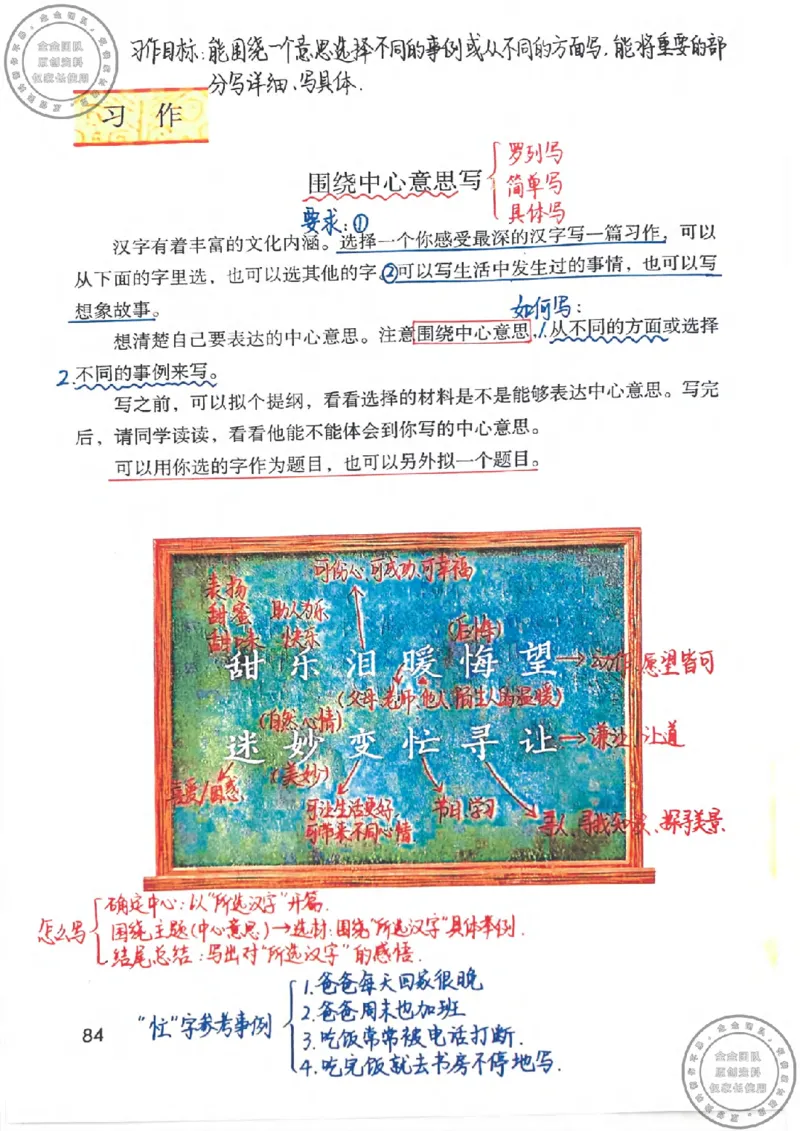 企企团队
原创资料
仅家长使用
习作目标:能围绕一个意思选择不同的事例或从不同的方面写,能将重要的部
分写详细、写具体.
习 作
围绕中心意思写
罗列写
简单写
具体写
要求:①
汉字有着丰富的文化内涵。选择一个你感受最深的汉字写一篇习作,可以
从下面的字里选,也可以选其他的字。②可以写生活中发生过的事情,也可以写
想象故事。
如何写:
想清楚自己要表达的中心意思。注意围绕中心意思,1.从不同的方面或选择
2.不同的事例来写。
写之前,可以拟个提纲,看看选择的材料是不是能够表达中心意思。写完
后,请同学读读,看看他能不能体会到你写的中心意思。
可以用你选的字作为题目,也可以另外拟一个题目。
可伤心、可成功、可幸福
表扬
甜蜜
甜味
助人为乐
快乐
(后悔)
甜 乐 泪 暖 悔 望
动作、愿望皆可
(父母、老师、他人、陌生人的温暖)
(自然、心情)
迷 妙 变 忙 寻 让
谦让、让道
喜爱/困惑
(美妙)
可让生活更好,
可带来不同心情
节日、学习
寻人、寻找知识、探寻美景.
怎么写
确定中心:以“所选汉字”开篇.
围绕主题(中心意思)→选材:围绕“所选汉字”具体举例.
结尾总结:写出对“所选汉字”的感悟.
“忙”字参考事例
1.爸爸每天回家很晚
2.爸爸周末也加班
3.吃饭常常被电话打断.
4.吃完饭就去书房不停地写.
84
企企团队
原创资料
仅家长使用